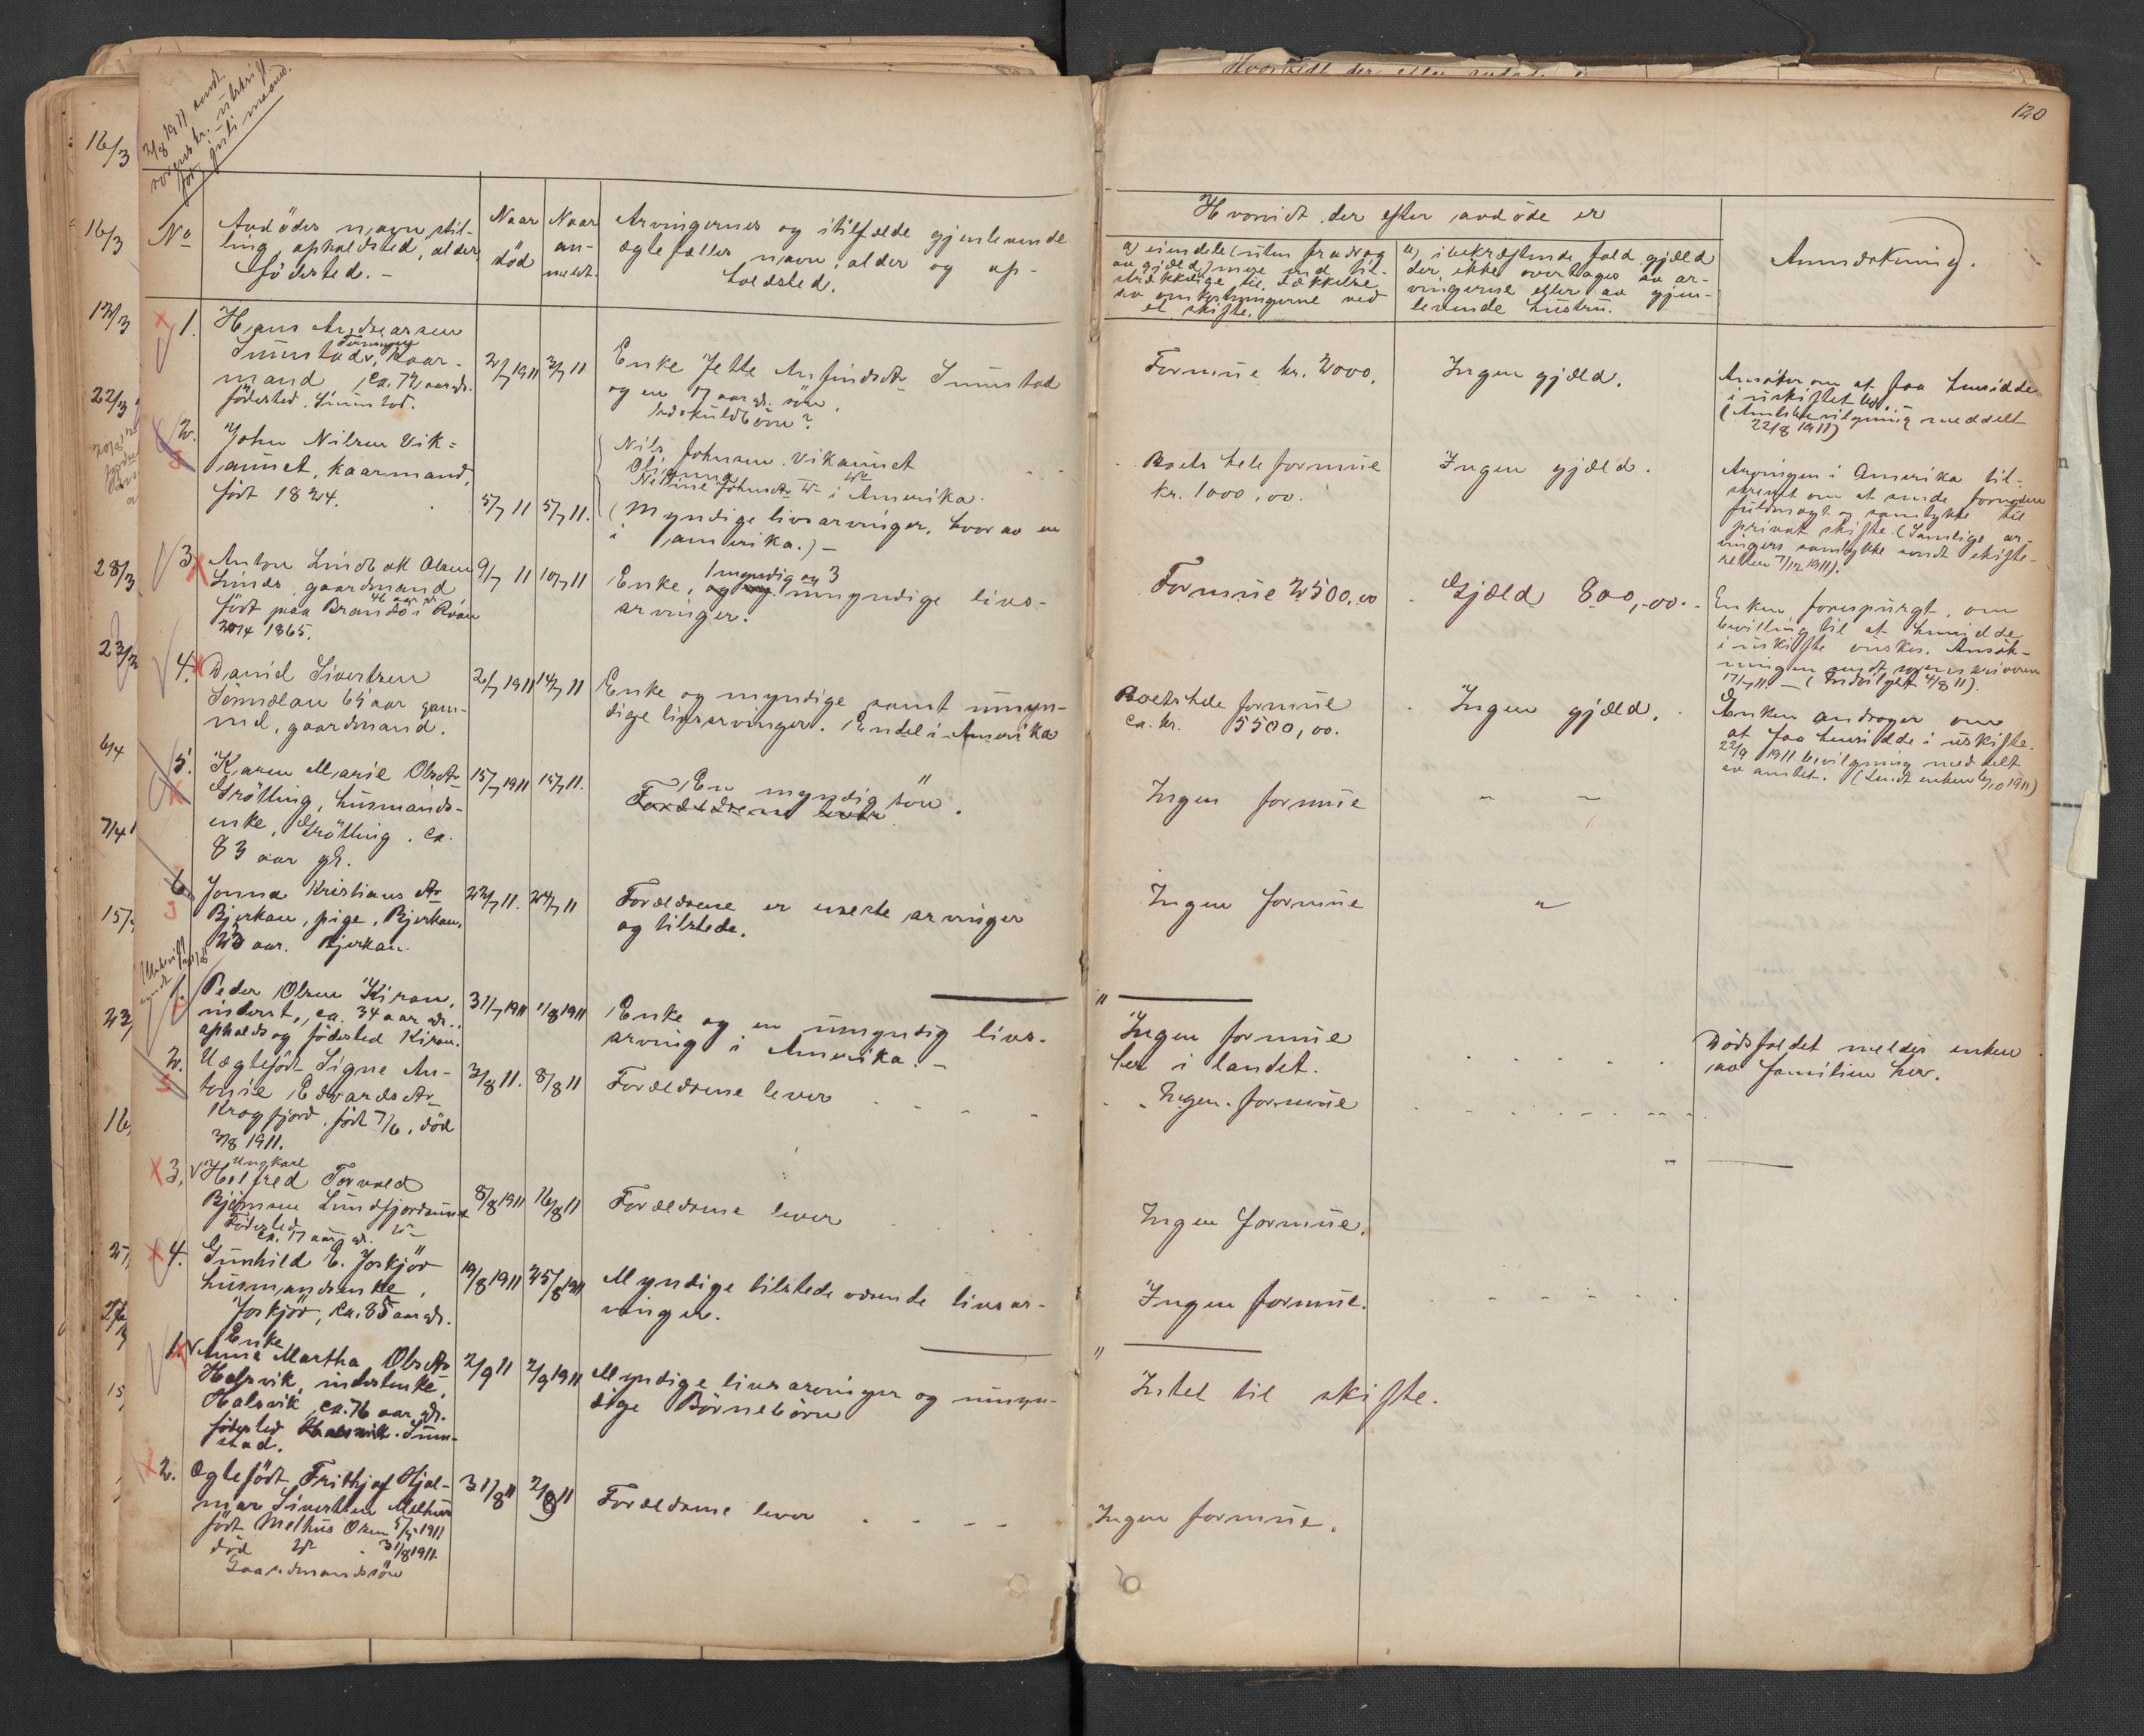 2/8 1911 sendt
sorenskr. utskrift
for juli maaned.
120
No
Avdödes navn, stil-
ling, opholdssted, alder,
födested. -
Naar
död
Naar
an-
meldt.
Arvingernes og i tilfælde gjenlevende
ægtefælles navn, alder og op-
holdssted.
Hvorvidt der efter avdöde er
a) eiendele (uten fradrag
av gjæld) mere end til-
strækkelige til dækkelse
av omkostningerne ved
et skifte.
b) i bekræftende fald gjæld
der ikke overtages av ar-
vingerne eller av gjen-
levende hustru.
Anmerkning.
1. Hans Andreassen
Sunstad, kaar-
mand, ca. 72 aar gl.
födested Sunstad.
2/7 1911 3/7 11
Enke Jette Anfindsdtr Sunstad
og en 17 aar gl. sön.
Formue kr. 2000.
Ingen gjæld.
Ansöker om at faa hensidde
i uskiftet bo.
(Amtsbevilgning meddelt
22/8 1911)
2. John Nilsen Vik-
aunet, kaarmand,
födt 1824.
5/7 11 5/7 11.
Nils Johnsen Vikaunet
i Amerika.
(Myndige livsarvinger, hvor av en
i Amerika.) -
Boets hele formue
kr. 1000,00.
Ingen gjæld.
Arvingen i Amerika til-
skrevet om at sende fornöden
fuldmagt og samtykke til
privat skifte. (Samtlige ar-
vingers samtykke sendt skifte-
retten 7/12 1911).
3. Anton Lindbak Olsen
Linds, gaardmand
46 aar gl.
födt paa
20/4 1865.
9/7 11 10/7 11
Enke, 1 myndig og 3
umyndige livs-
arvinger.
Formue 2500,00
Gjæld 800,00.
Enken forespurgt om
bevilling til at hensidde
i uskifte önskes. Ansök-
ningen sendt sorenskriveren
17/7 11. - (Indvilget 4/8 11).
4. Daniel Sivertsen
65 aar gam-
mel, gaardmand.
2/7 1911 14/7 11
Enke og myndige samt umyn-
dige livsarvinger. Endel i Amerika
Boets hele formue
ca. kr. 5500,00.
Ingen gjæld.
Enken andrager om
at faa hensidde i uskifte.
22/9 1911 bevilgning meddelt
av amtet. (Sendt enken 6/10 1911)
5. Karen Marie Olsdtr
Grötting, husmands-
enke, Grötting. ca.
83 aar gl.
15/7 1911 15/7 11.
En myndig sön.
Forældrene lever
Ingen formue
6. Jonna Kristiansdtr
Bjerkan, pige, Bjerkan,
23 aar. Bjerkan.
22/7 11. 24/7 11
Forældrene er eneste arvinger
og tilstede.
Ingen formue
"
Utskrift
sendt
1. Peder Olsen Kiran,
inderst, ca. 34 aar gl.
opholds og födested Kiran.
31/7 1911 1/8 1911
Enke og en umyndig livs-
arving i Amerika. -
Ingen formue
her i landet.
Dödsfaldet meldes enken
av familien her.
2. Uægtefödt Signe An-
tonie Edvardsdtr
Krogfjord. födt 7/6, död
3/8 1911.
3/8 11. 8/8 11
Forældrene lever
Ingen formue
3. Ungkarl
Halfred Torvald
Björnsen Sundfjordaunet
Födested
ca. 17 aar gl.
8/8 1911 16/8 11
Forældrene lever
Ingen formue.
4. Gunhild E. Joskjör
husmandsenke,
Joskjör, ca. 85 aar gl.
19/8 1911 25/8 1911
Myndige tilstedeværende livsar-
vinger.
Ingen formue.
"
1. Enke
Anna Martha Olsdtr
Halsvik, inderstenke,
Halsvik, ca. 76 aar gl.
födested Halsvik. Sum-
stad.
2/9 11 2/9 1911
Myndige livsarvinger og umyn-
dige Börnebörn
Intet til skifte.
2. Ægtefödt Frithjof Hjal-
mar Sivertsen Melhus
födt Melhus Osen 5/5 1911
död 31/8 1911.
Gaardmandssön
31/8 11 2/9 11
Forældrene lever
Ingen formue.
16/3
16/3
17/3
22/3
28/3
23/3
6/4
7/4